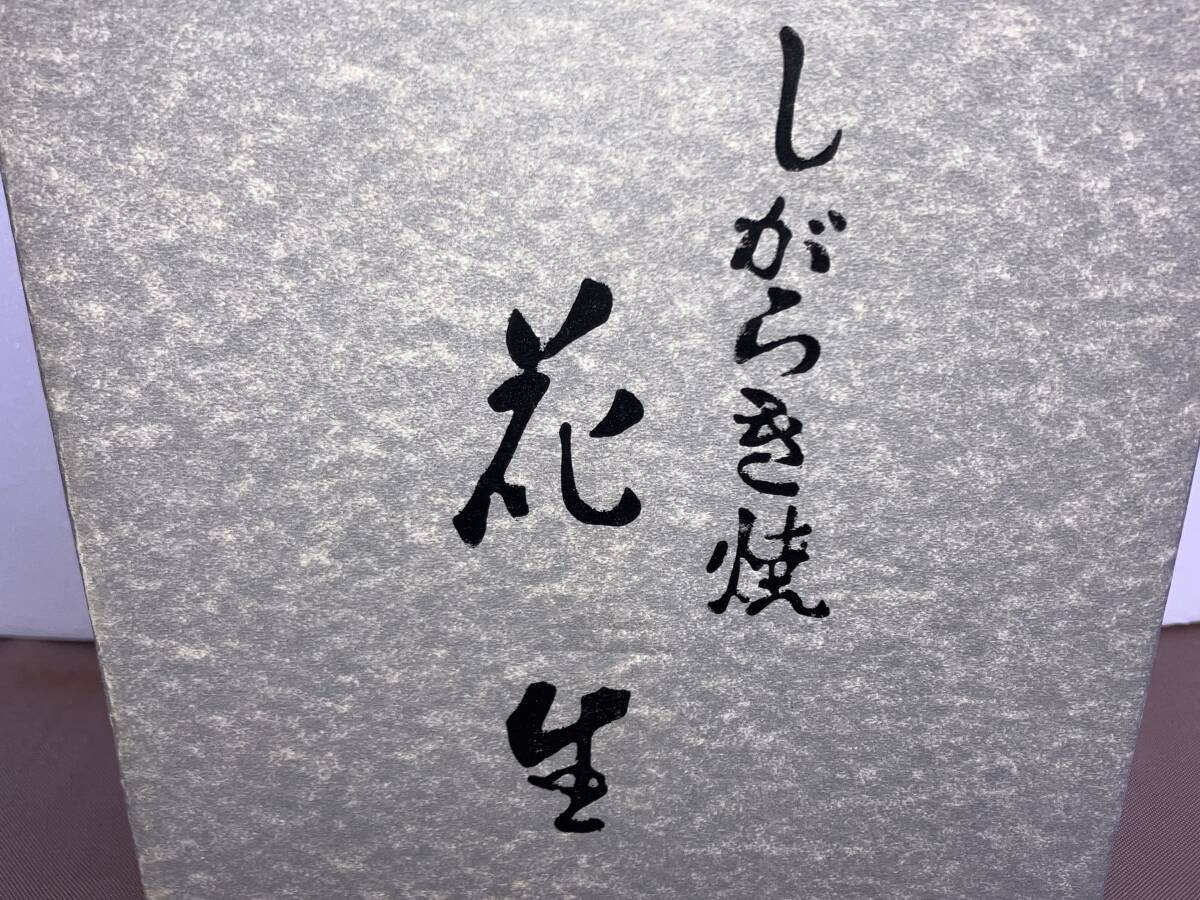 しがらき焼
花生